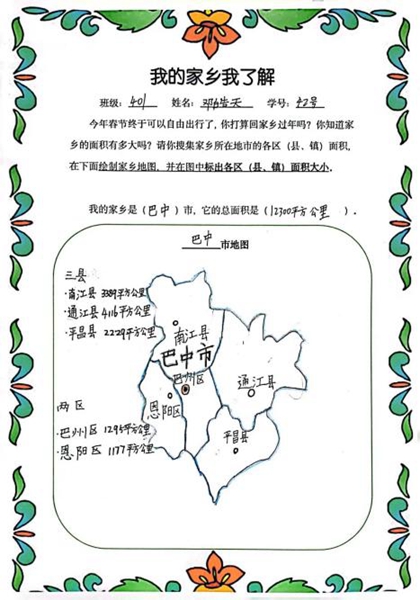 我的家乡我了解
班级：401 姓名： 学号：42号
今年春节终于可以自由出行了，你打算回家乡过年吗？你知道家
乡的面积有多大吗？请你搜集家乡所在地市的各区（县、镇）面积，
在下面绘制家乡地图，并在图中标出各区（县、镇）面积大小．
我的家乡是（巴中）市，它的总面积是（12300平方公里）．
巴中市地图
三县
·南江县 3389平方公里
·通江县 4116平方公里
·平昌县 2229平方公里
南江县
巴中市
巴州区
通江县
恩阳区
平昌县
两区
·巴州区 1295平方公里
·恩阳区 1177平方公里